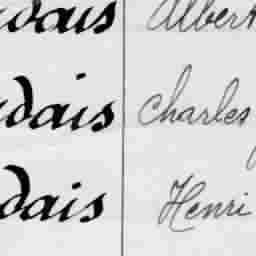 dais Albert
dais Charles
dais Henri